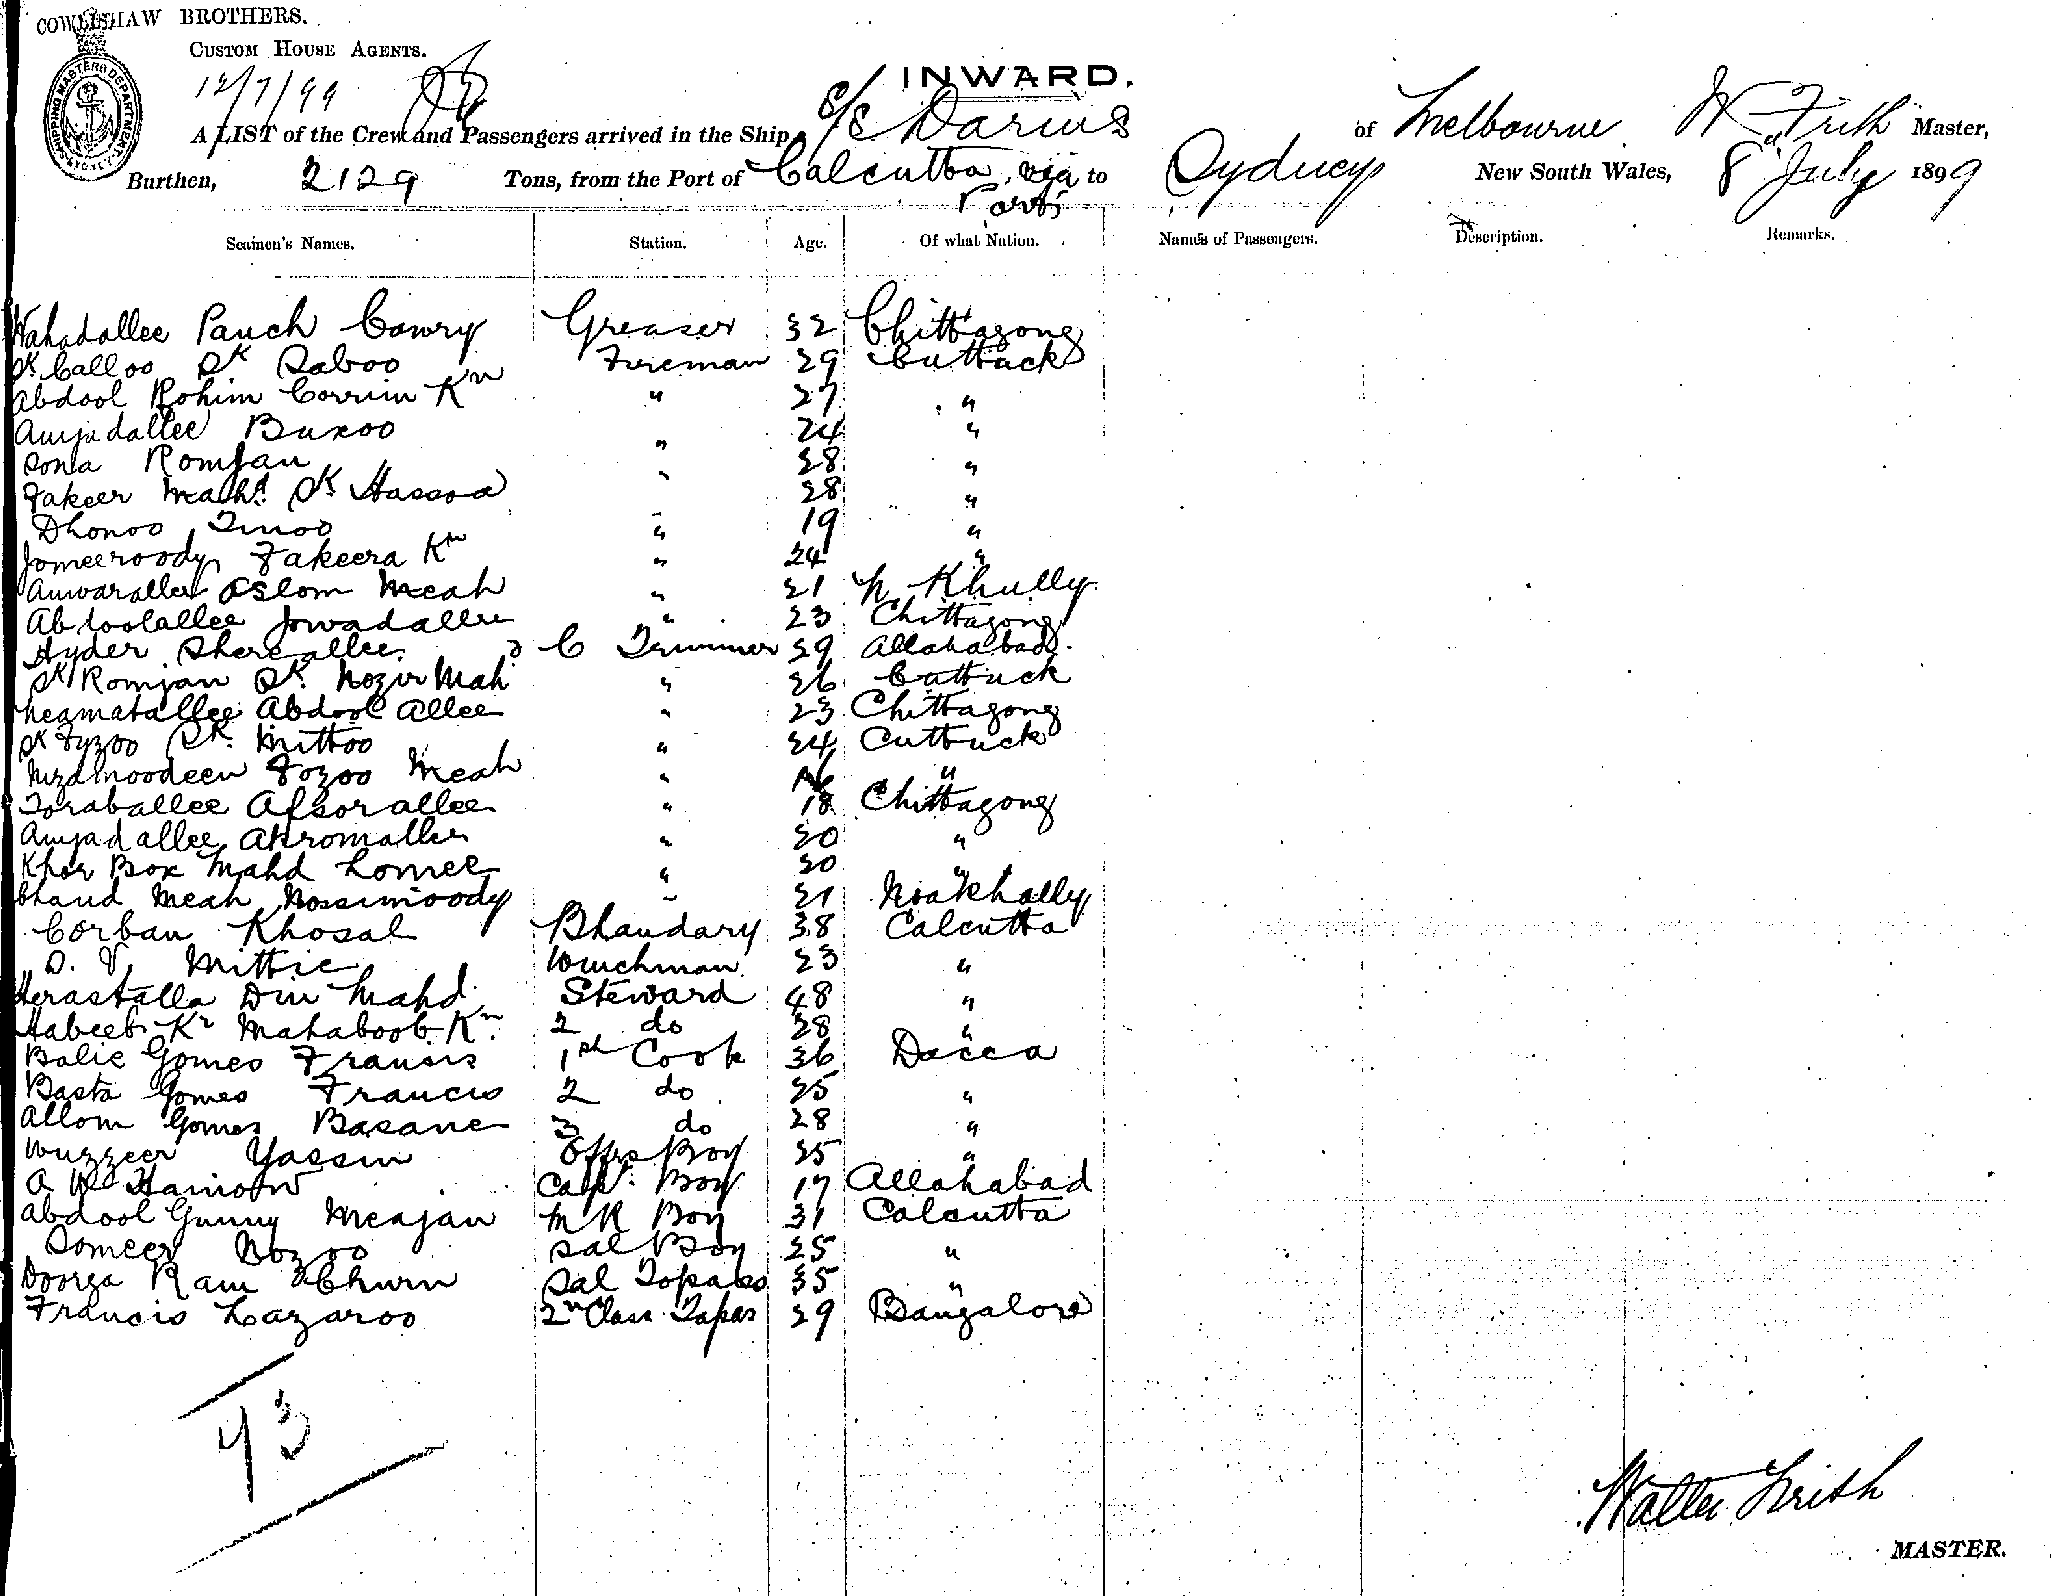 COWLISHAW BROTHERS.
CUSTOM HOUSE AGENTS.
SHIPPING MASTERS DEPARTMENT
12/7/99
INWARD.
A LIST of the Crew and Passengers arrived in the Ship S/S Darius of Melbourne W Frith Master,
Burthen, 2129 Tons, from the Port of Calcutta via Ports to Sydney New South Wales, 8 July 1899
Seamen's Names. Station. Age. Of what Nation. Names of Passengers. Description. Remarks.
Wahadallee Panch Cowry Greaser 32 Chittagong
Sk Calloo Sk Saboo Fireman 29 Cuttack
Abdool Rohim Corrim Kn " 27 "
Amjadallee Buxoo " 24 "
Sona Romjan " 28 "
Fakeer Mahd. Sk Hassoo " 28 "
Dhonoo Tinoo " 19 "
Jomeeroody Fakeera Kn " 24 "
Anwarallee Aslom Meah " 21 N Khully
Abdoolallee Jowadallee " 23 Chittagong
Hyder Shereallee C Trimmer 29 Allahabad.
Sk Romjan Sk. Nozir Mah " 26 Cuttuck
Neamatallee Abdool Allee " 23 Chittagong
Sk Fyzoo Sk. Mittoo " 24 Cuttuck
Nizamoodeen Fozoo Meah " "
Toraballee Afsorallee " 18 Chittagong
Amjadallee Akromallee " 20 "
Kher Box Mahd Lomee " 20 "
Chand Meah Nossimoody " 21 Noakhally
Corban Khosal Bhandary 38 Calcutta
D. V. Mittie Winchman 23 "
Herastalla Din Mahd Steward 48 "
Habeeb Kn Mahaboob Kn. 2 do 28 "
Balie Gomes Fransis 1st Cook 36 Dacca
Basta Gomes Francis 2 do 25 "
Allom Gomes Basane 3 do 28 "
Wuzzeer Yassin Offrs Boy 25 "
A W Hamow Capt. Boy 17 Allahabad
Abdool Gunny Meajan M R Boy 31 Calcutta
Someer Bozoo Sal Boy 25 "
Doorga Ram Churn Sal Topass 35 "
Francis Lazaroo 2n Class Topas 29 Bangalore
93
Walter Frith
MASTER.